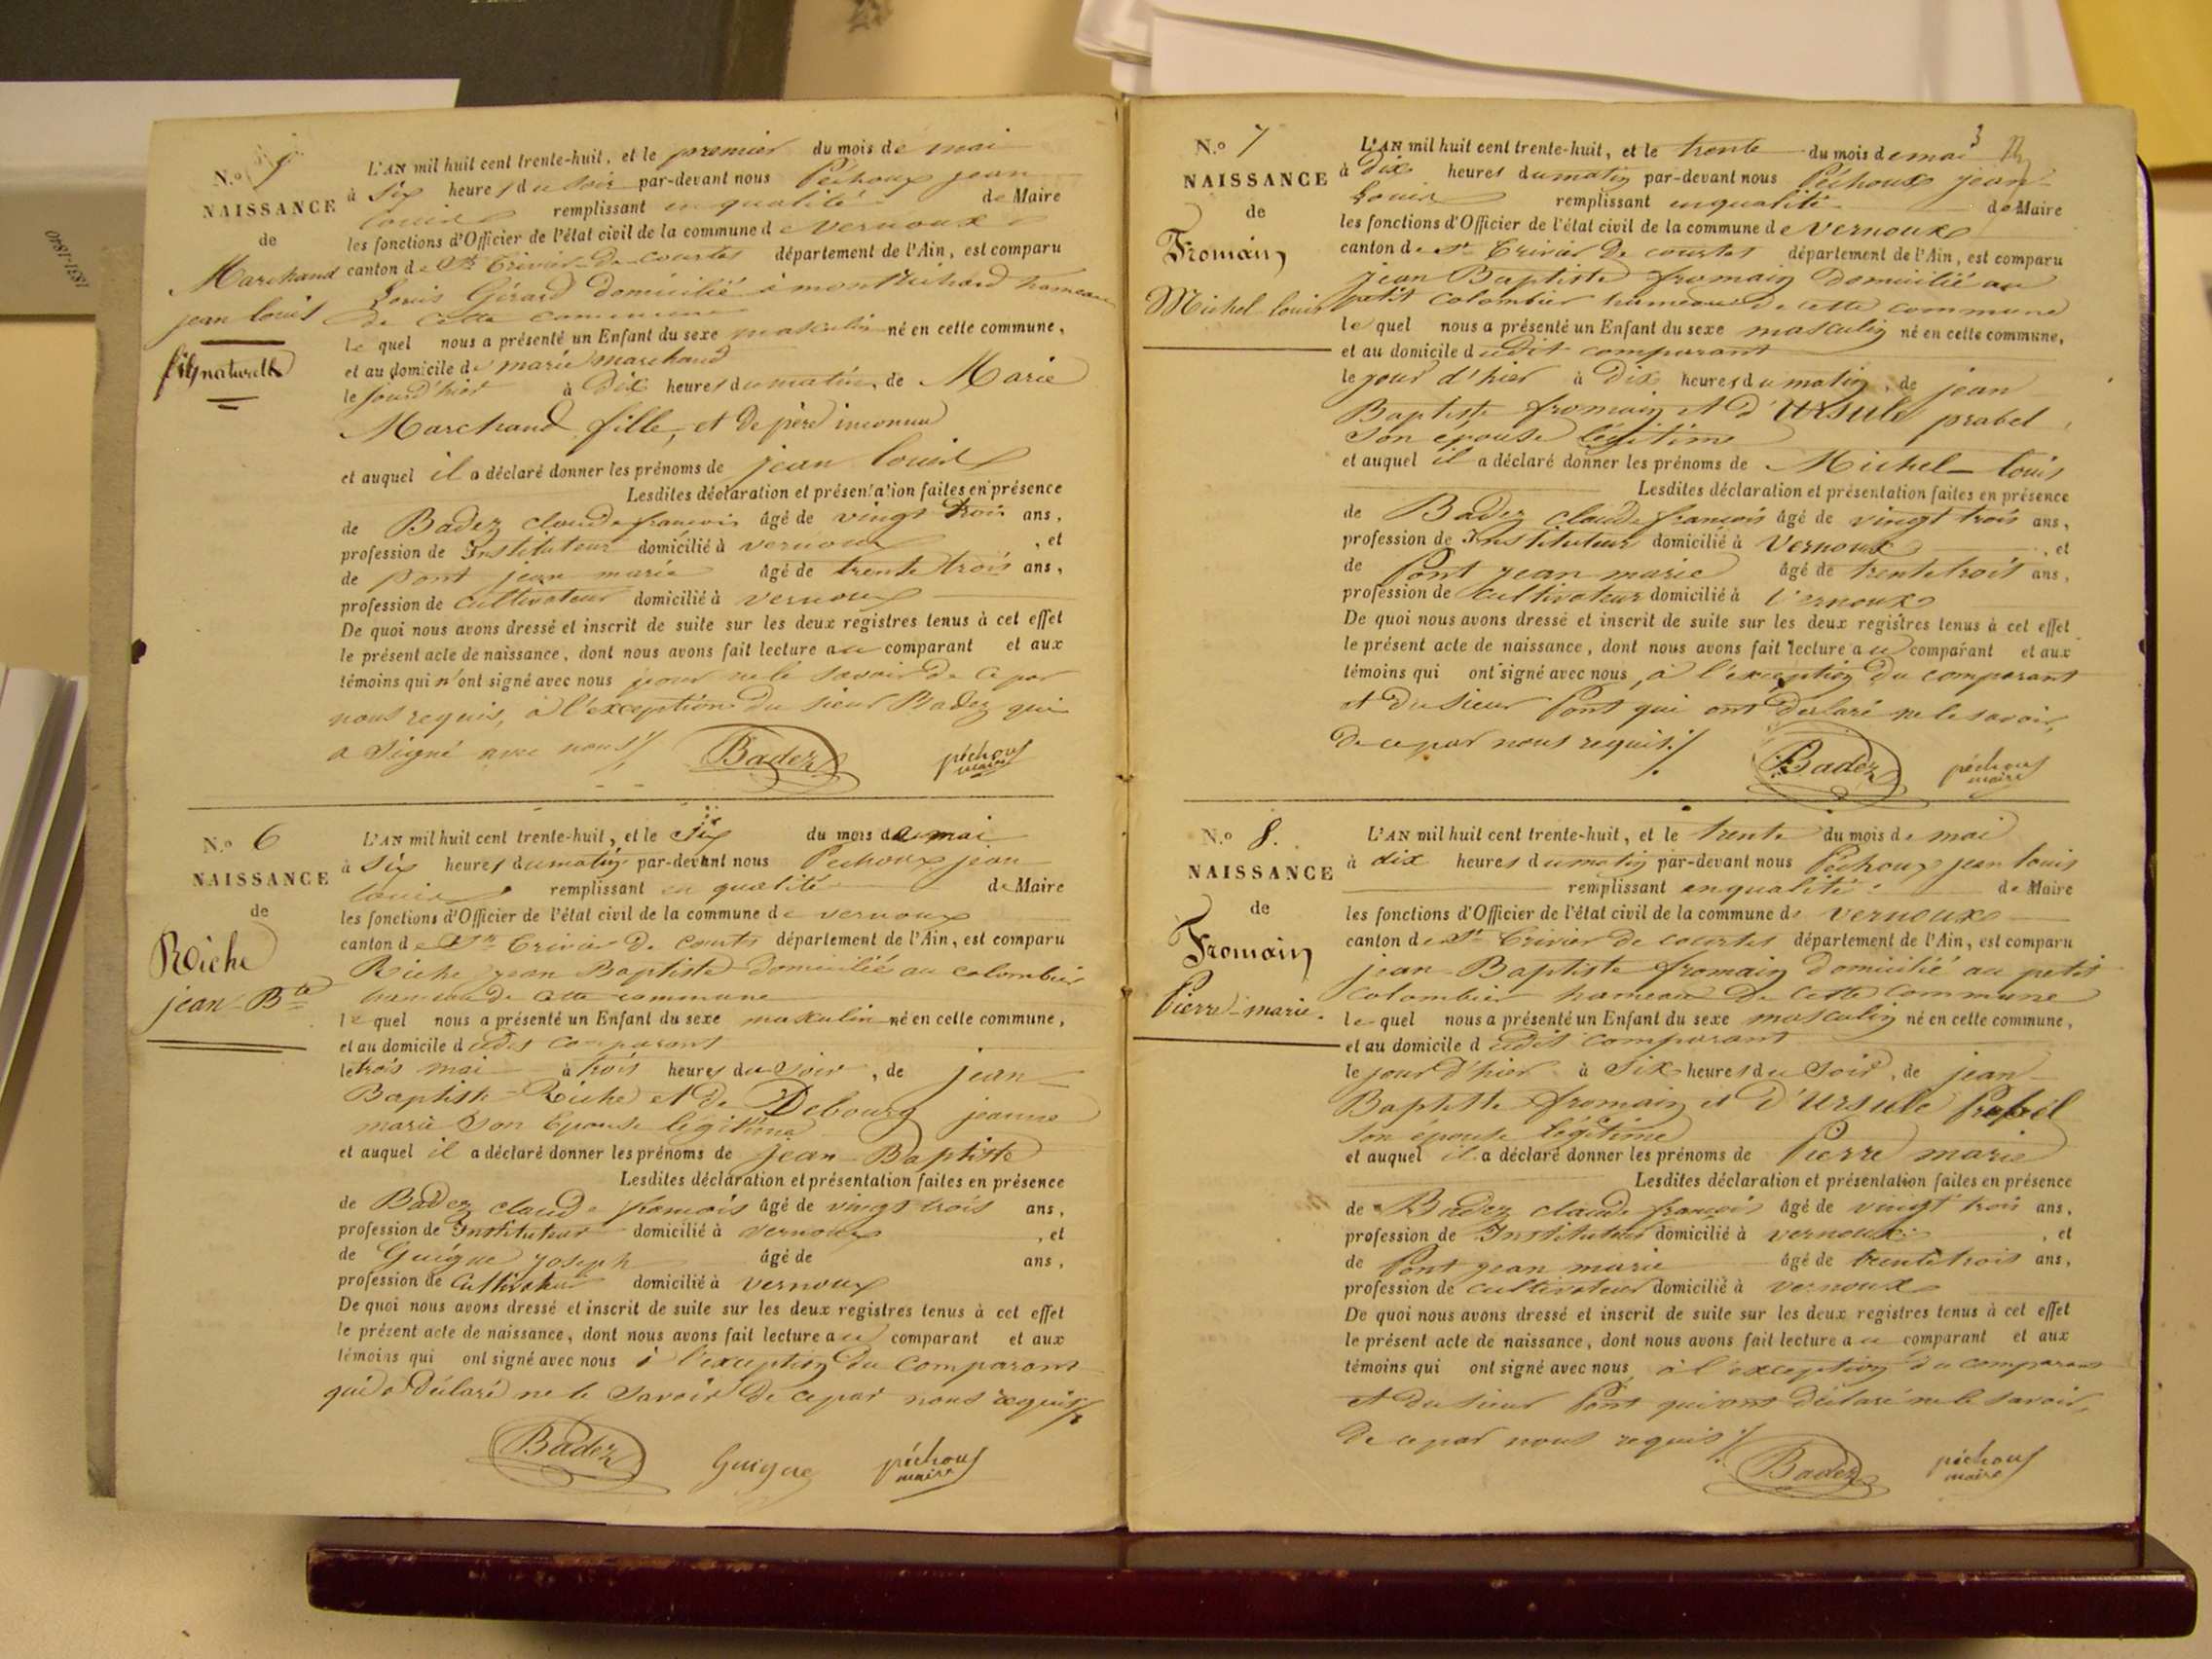 1831-1840
N.º 5
NAISSANCE
de
Marchand
jean louis
fils naturelle
L'AN mil huit cent trente-huit, et le premier du mois de mai
à six heures du soir par-devant nous Péchoux jean
louis remplissant en qualité de Maire
les fonctions d'Officier de l'état civil de la commune de vernoux
canton de St Trivier De courtes département de l'Ain, est comparu
Louis Gérard domicilié à montrichard hameau
de cette commune
le quel nous a présenté un Enfant du sexe masculin né en cette commune,
et au domicile de marie marchand
le jourd'hier à Dix heures du matin, de Marie
Marchand fille, et de père inconnu
et auquel il a déclaré donner les prénoms de jean louis
Lesdites déclaration et présentation faites en présence
de Badez claude francois âgé de vingt trois ans,
profession de Instituteur domicilié à vernoux , et
de pont jean marie âgé de trente trois ans,
profession de cultivateur domicilié à vernoux
De quoi nous avons dressé et inscrit de suite sur les deux registres tenus à cet effet
le présent acte de naissance, dont nous avons fait lecture au comparant et aux
témoins qui n'ont signé avec nous pour ne le savoir De ce par
nous requis, à l'exception du sieur Badez qui
a signé avec nous
Badez péchoux
maire
N.º 6
NAISSANCE
de
Riche
jean-Bte
L'AN mil huit cent trente-huit, et le six du mois de mai
à six heures du matin par-devant nous Péchoux jean
louis remplissant en qualité de Maire
les fonctions d'Officier de l'état civil de la commune de vernoux
canton de St Trivier De Courtes département de l'Ain, est comparu
Riche jean Baptiste domicilié au colombier
hameau de cette commune
le quel nous a présenté un Enfant du sexe masculin né en cette commune,
et au domicile dudit comparant
le trois mai à trois heures du soir, de jean
Baptiste Riche et de Debourg jeanne
marie son Epouse légitime
et auquel il a déclaré donner les prénoms de jean-Baptiste
Lesdites déclaration et présentation faites en présence
de Badez claude francois âgé de vingt trois ans,
profession de Instituteur domicilié à vernoux , et
de Guigue joseph âgé de ans,
profession de Cultivateur domicilié à vernoux
De quoi nous avons dressé et inscrit de suite sur les deux registres tenus à cet effet
le présent acte de naissance, dont nous avons fait lecture au comparant et aux
témoins qui ont signé avec nous à l'exception du comparant
qui a déclaré ne le savoir De ce par nous requis
Badez Guigue péchoux
maire
3
N.º 7
NAISSANCE
de
Fromain
Michel louis
L'AN mil huit cent trente-huit, et le trente du mois de mai
à Dix heures du matin par-devant nous Péchoux jean
Louis remplissant en qualité de Maire
les fonctions d'Officier de l'état civil de la commune de Vernoux
canton de St Trivier De courtes département de l'Ain, est comparu
jean Baptiste fromain domicilié au
petit colombier hameau de cette commune
le quel nous a présenté un Enfant du sexe masculin né en cette commune,
et au domicile dudit comparant
le jour d'hier à Dix heures du matin, de jean
Baptiste fromain et d'Ursule prabel
son épouse légitime
et auquel il a déclaré donner les prénoms de Michel-louis
Lesdites déclaration et présentation faites en présence
de Badez claude francois âgé de vingt trois ans,
profession de Instituteur domicilié à Vernoux , et
de Pont jean marie âgé de trente trois ans,
profession de cultivateur domicilié à Vernoux
De quoi nous avons dressé et inscrit de suite sur les deux registres tenus à cet effet
le présent acte de naissance, dont nous avons fait lecture au comparant et aux
témoins qui ont signé avec nous, à l'exception du comparant
et du sieur Pont qui ont déclaré ne le savoir,
De ce par nous requis
Badez péchoux
maire
N.º 8.
NAISSANCE
de
Fromain
Pierre-marie.
L'AN mil huit cent trente-huit, et le trente du mois de mai
à dix heures du matin par-devant nous Péchoux jean louis
remplissant en qualité de Maire
les fonctions d'Officier de l'état civil de la commune de vernoux
canton de St Trivier de courtes département de l'Ain, est comparu
jean-Baptiste fromain domicilié au petit
colombier hameau de cette commune
le quel nous a présenté un Enfant du sexe masculin né en cette commune,
et au domicile dudit comparant
le jour d'hier à six heures du soir, de jean
Baptiste fromain et d'Ursule
son épouse légitime
et auquel il a déclaré donner les prénoms de Pierre marie
Lesdites déclaration et présentation faites en présence
de Badez claude francois âgé de vingt trois ans,
profession de Instituteur domicilié à vernoux , et
de Pont jean marie âgé de trente trois ans,
profession de cultivateur domicilié à vernoux
De quoi nous avons dressé et inscrit de suite sur les deux registres tenus à cet effet
le présent acte de naissance, dont nous avons fait lecture au comparant et aux
témoins qui ont signé avec nous, à l'exception du comparant
et du sieur Pont qui ont déclaré ne le savoir,
De ce par nous requis
Badez péchoux
maire